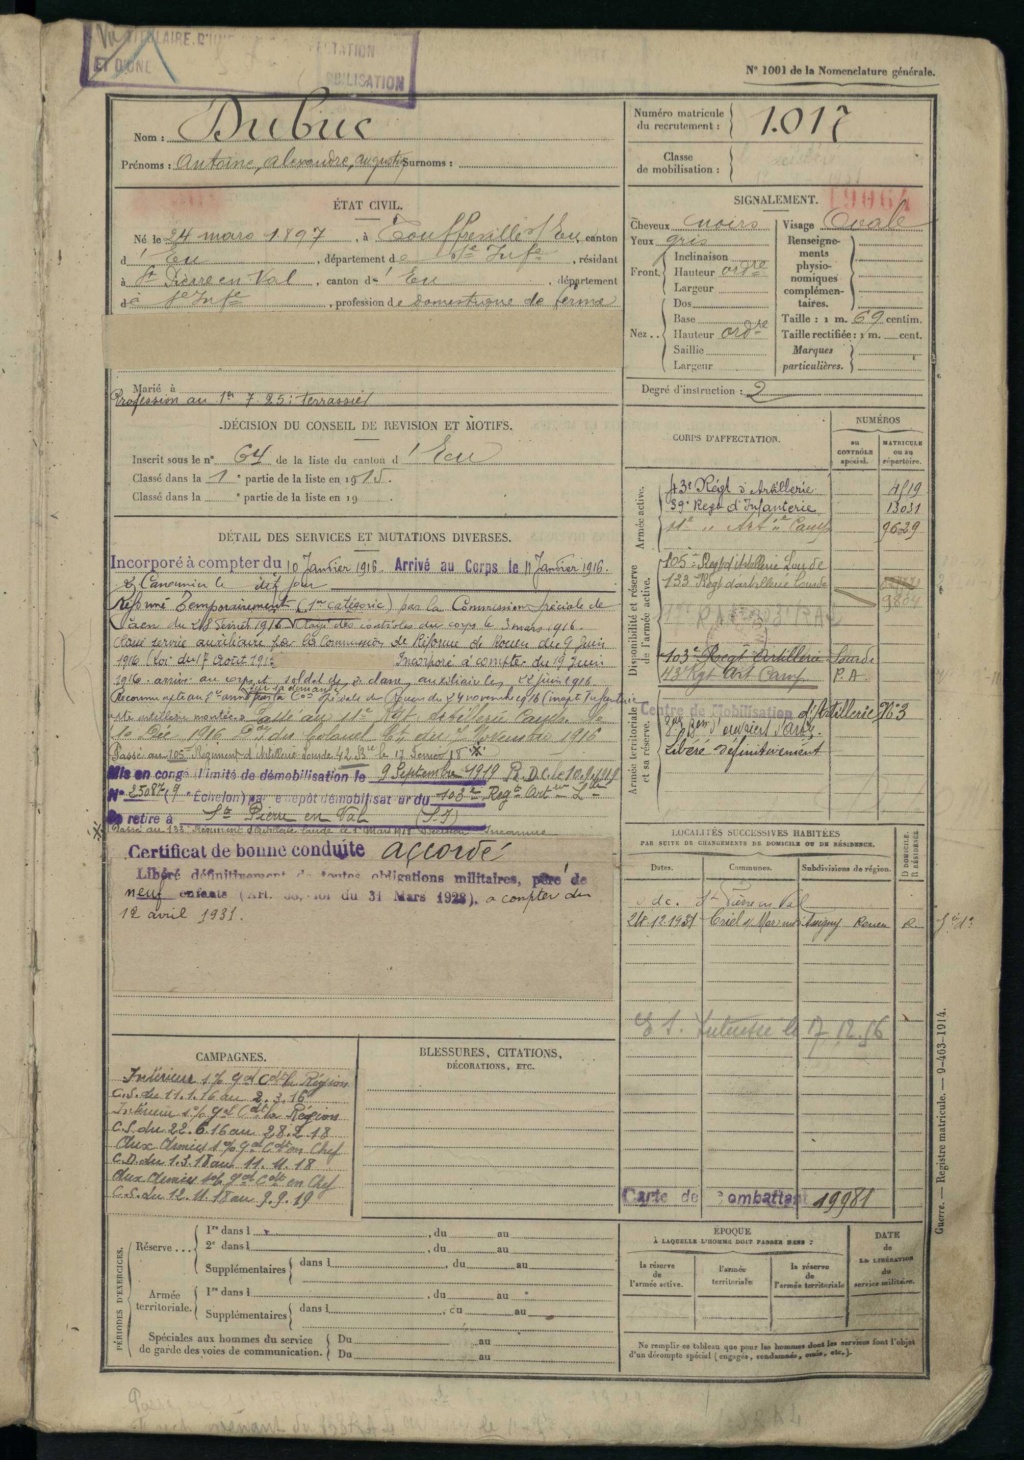 TITULAIRE D'UNE
ET D'UNE
MOBILISATION
N° 1001 de la Nomenclature générale.
Nom : Dubuc
Prénoms : Antoine, Alexandre, Auguste Surnoms :
Numéro matricule du recrutement : 1.017
Classe de mobilisation :
ÉTAT CIVIL.
Né le 24 mars 1897, à Touffreville s/ Eu, canton
d' Eu, département de Sne Infre, résidant
à St Pierre en Val, canton d' Eu, département
de Infre, profession de domestique de ferme
Marié à
Profession au 1er 7.25 : terrassier
SIGNALEMENT.
Cheveux noirs Visage Ovale
Yeux gris Renseignements physionomiques complémentaires.
Front. Inclinaison
Hauteur ordre
Largeur
Nez.. Dos
Base
Hauteur ordre
Saillie
Largeur
Taille : 1 m. 69 centim.
Taille rectifiée : 1 m. cent.
Marques particulières.
Degré d'instruction : 2
DÉCISION DU CONSEIL DE REVISION ET MOTIFS.
Inscrit sous le n° 64 de la liste du canton d' Eu
Classé dans la 1e partie de la liste en 1915.
Classé dans la e partie de la liste en 19
CORPS D'AFFECTATION.
NUMÉROS
au contrôle spécial.
MATRICULE ou au répertoire.
Armée active.
43e Régt d'Artillerie 4519
39e Régt d'Infanterie 13031
11e " Artie Camp 9629
Disponibilité et réserve de l'armée active.
105e Regt d'Artillerie Lourde
133 Regt d'artillerie Lourde 9804
103e Regt Artillerie Lourde
43e Rgt Art Camp P.A
Armée territoriale et sa réserve.
Centre de Mobilisation d'Artillerie N°3
Libéré Définitivement
DÉTAIL DES SERVICES ET MUTATIONS DIVERSES.
Incorporé à compter du 10 Janvier 1916. Arrivé au Corps le 11 Janvier 1916.
et Canonnier le dit jour
Réformé Temporairement (1re catégorie) par la Commission spéciale de
Caen du 28 Février 1916 Rayé des contrôles du corps le 3 mars 1916.
Classé service auxiliaire par la Commission de Réforme de Rouen du 9 Juin
1916 (Loi du 17 Aout 1915 Incorporé à compter du 19 Juin
1916. arrivé au corps et soldat de 2e classe auxiliaire le 22 juin 1916.
Passé au 11e Rgt artillerie Camp. le
10 Déc 1916 Don du Colonel Ct du 7 Novembre 1916
Passé au 105e Régiment d'Artillerie Lourde 42 Bie le 17 Février 18 ※
Mis en congé illimité de démobilisation le 9 Septembre 1919
N° 25087 (9e Echelon) par le dépôt démobilisateur du 103e Regt Artie Lde
Se retire à St Pierre en Val (S.I)
※ Passé au 133e Régiment d'Artillerie Lourde le 1er Mars 1918
Certificat de bonne conduite accordé
Libéré définitivement de toutes obligations militaires, père de
neuf enfants (Art. loi du 31 Mars 1928), a compter du
12 avril 1931.
LOCALITÉS SUCCESSIVES HABITÉES
PAR SUITE DE CHANGEMENTS DE DOMICILE OU DE RÉSIDENCE.
Dates. Communes. Subdivisions de région. D DOMICILE. R RÉSIDENCE.
St Pierre en Val
24.12.1931 Criel s/ Mer Rouen R
17.12.56
CAMPAGNES.
Intérieur 1% Gal Cdt la Région
C.S. du 11.1.16 au 2.3.16
Intérieur 1% Gal Cdt la Région
C.S. du 22.6.16 au 28.2.18
Aux Armées 1% Gal Cdt en Chef
C.D. du 1.3.18 au 11.11.18
Aux Armées 1% Gal Cdt en Chef
C.S. du 12.11.18 au 9.9.19
BLESSURES, CITATIONS,
DÉCORATIONS, ETC.
Carte de Combattant 19981
PÉRIODES D'EXERCICES.
Réserve... 1re dans l , du au
2e dans l , du au
Supplémentaires dans l , du au
Armée territoriale. 1re dans l , du au
Supplémentaires dans l , du au
Spéciales aux hommes du service de garde des voies de communication. Du au
Du au
ÉPOQUE
À LAQUELLE L'HOMME DOIT PASSER DANS :
la réserve de l'armée active.
l'armée territoriale
la réserve de l'armée territoriale
DATE de LA LIBÉRATION du service militaire.
Ne remplir ce tableau que pour les hommes dont les services font l'objet
d'un décompte spécial (engagés, condamnés, omis, etc.).
Guerre. — Registre matricule. — 9-463-1914.